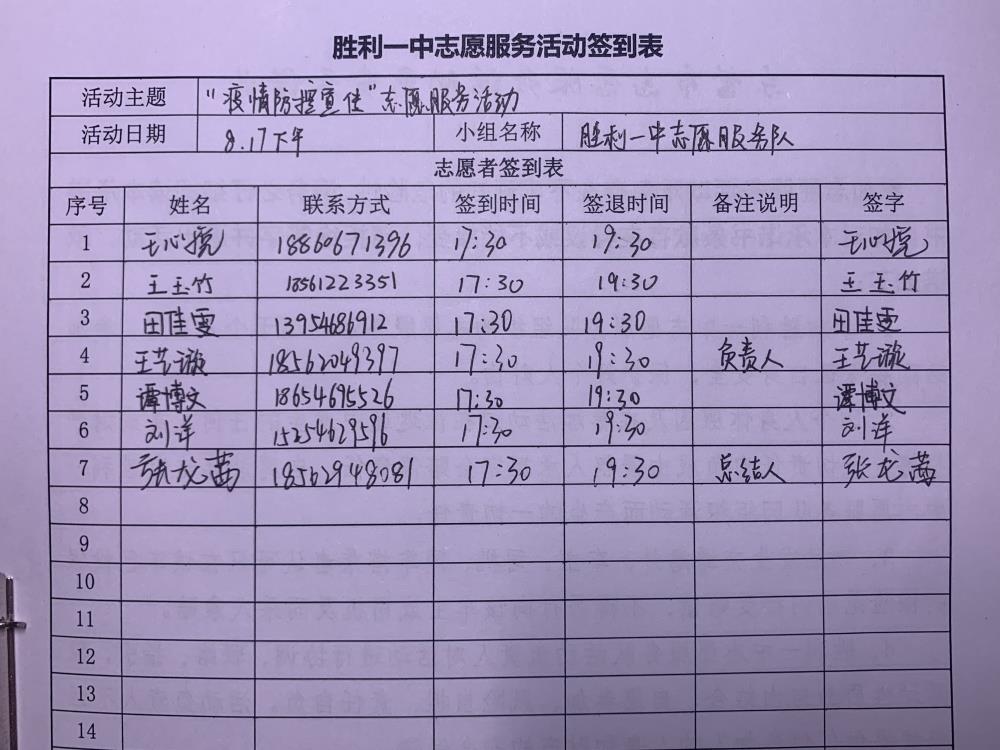 胜利一中志愿服务活动签到表
活动主题 "疫情防控宣传"志愿服务活动
活动日期 8.17下午 小组名称 胜利一中志愿服务队
志愿者签到表
序号 姓名 联系方式 签到时间 签退时间 备注说明 签字
1 王心搅 18860671396 17:30 19:30 王心搅
2 王玉竹 18561223351 17:30 19:30 王玉竹
3 田佳雯 13954686912 17:30 19:30 田佳雯
4 王艺璇 18562049397 17:30 19:30 负责人 王艺璇
5 谭博文 18654695526 17:30 19:30 谭博文
6 刘洋 15254629596 17:30 19:30 刘洋
7 张龙茜 18562948081 17:30 19:30 总结人 张龙茜
8
9
10
11
12
13
14